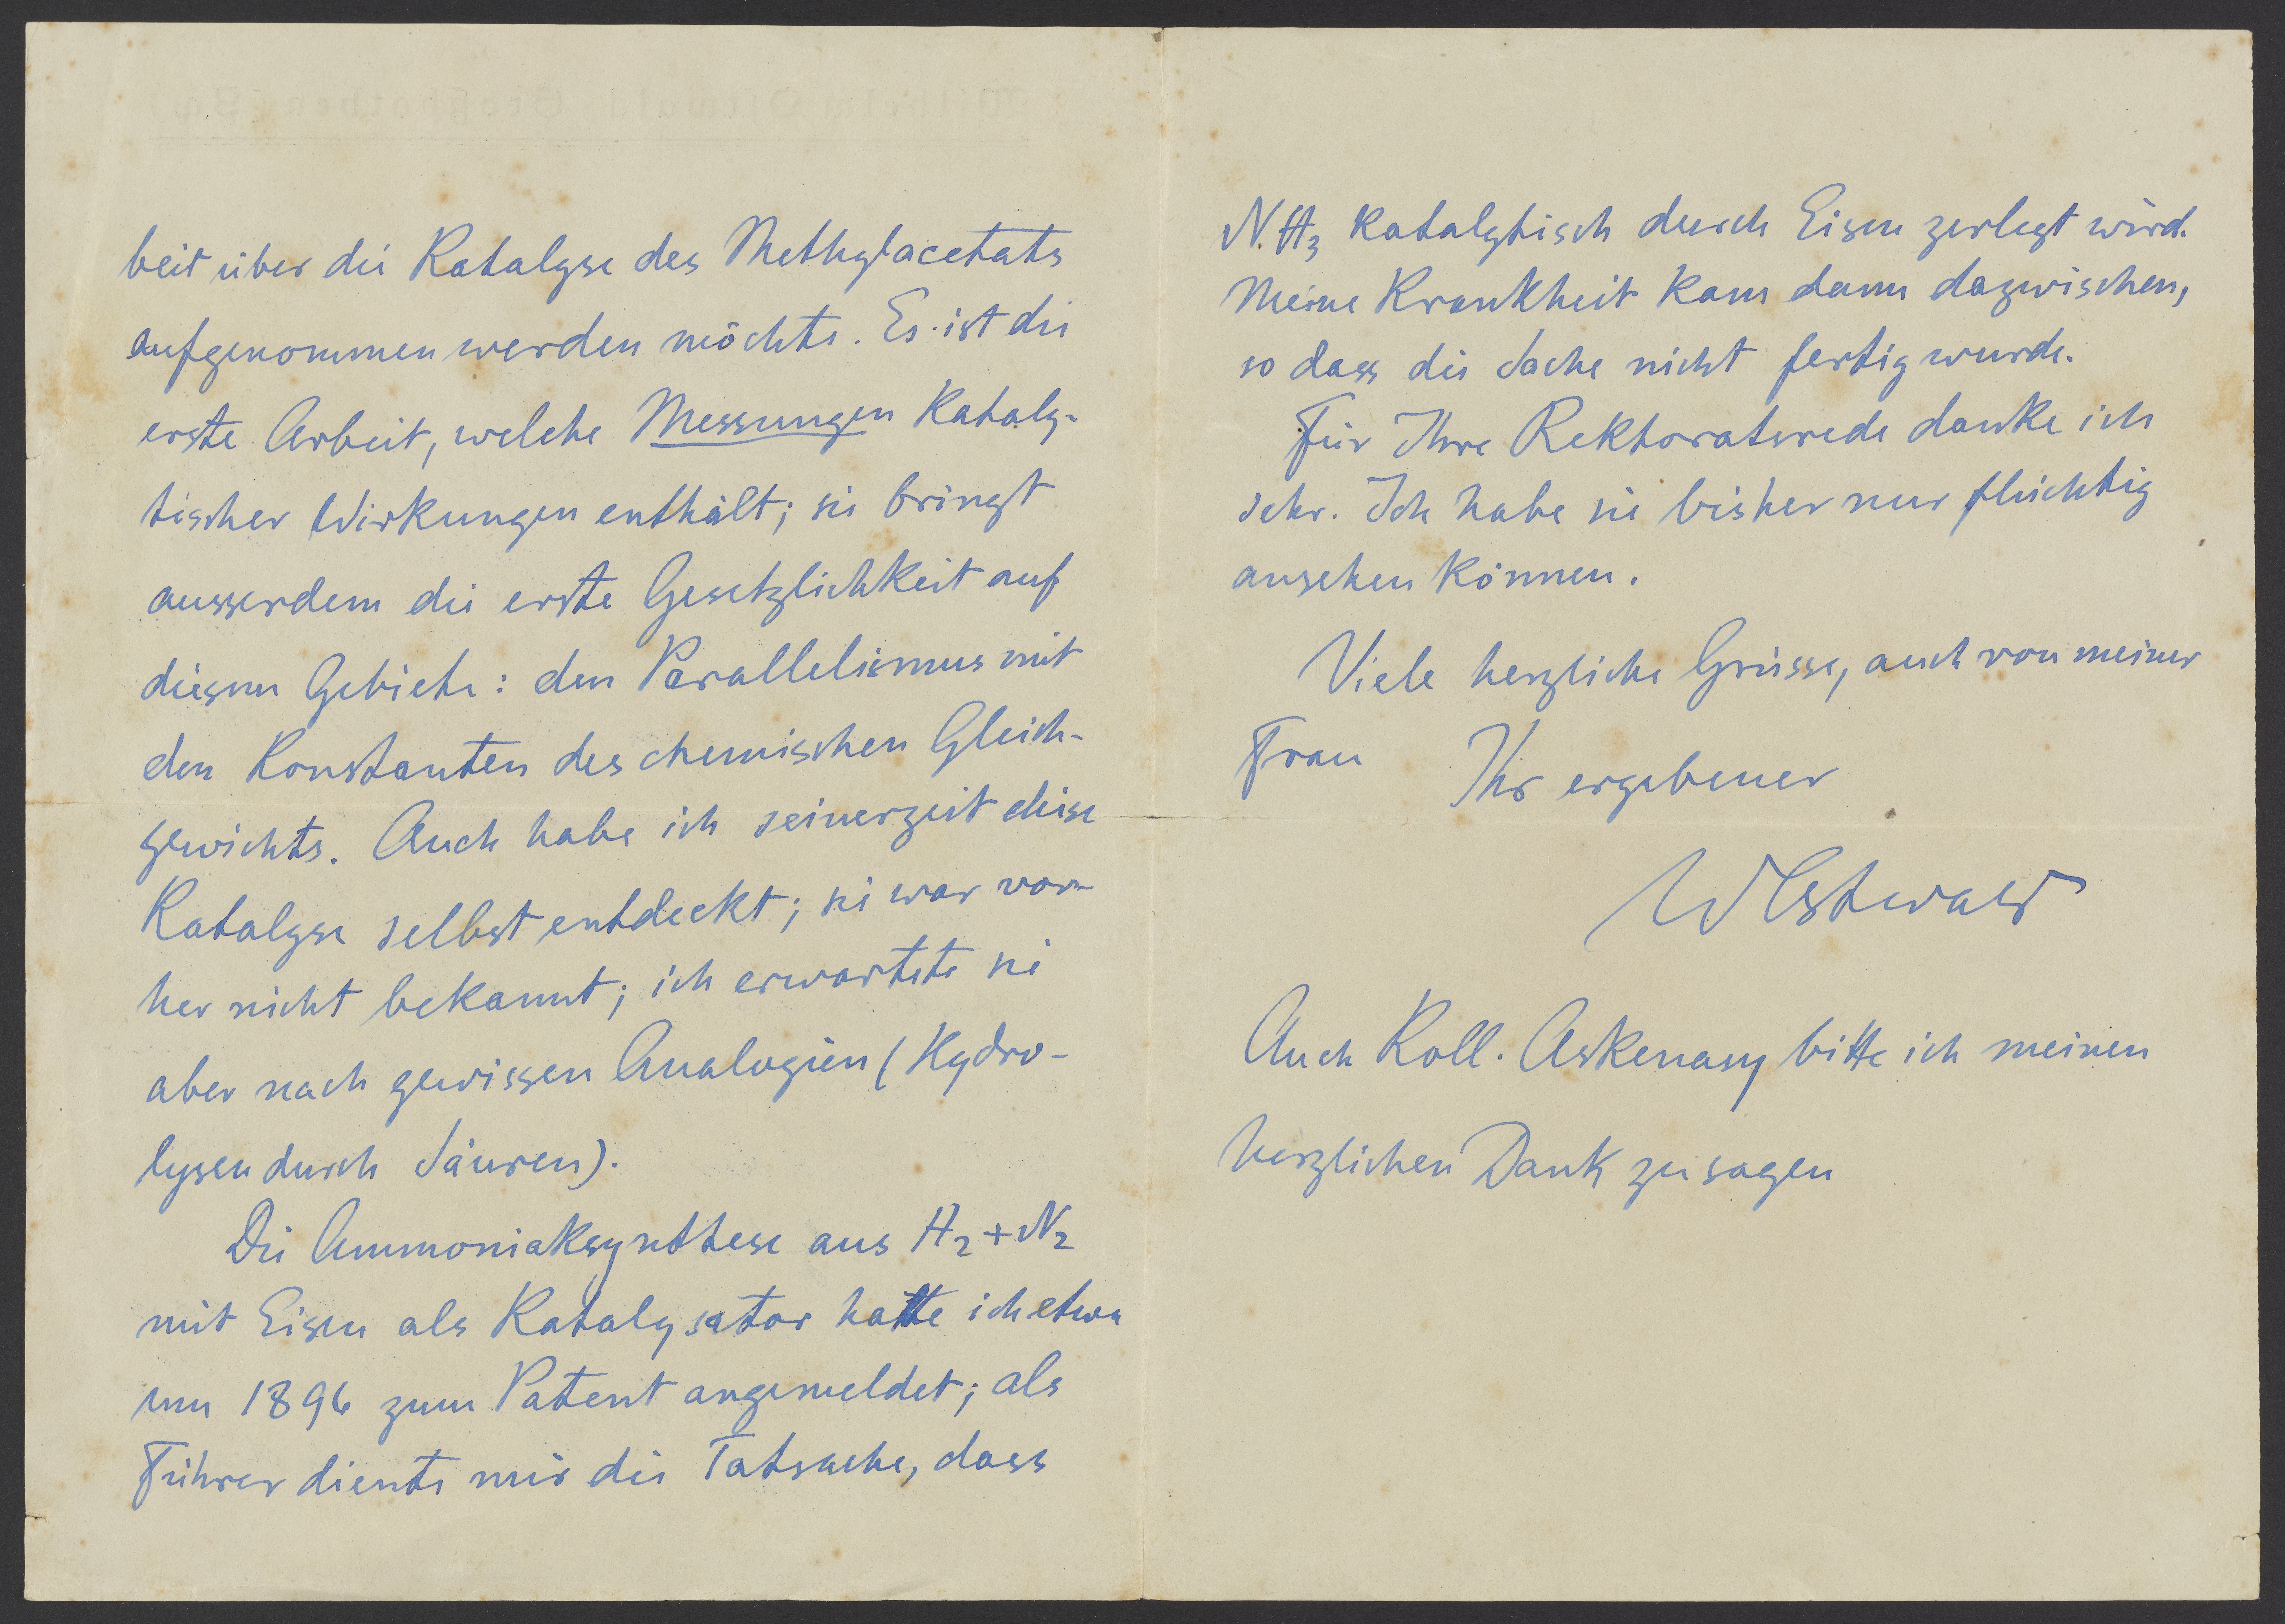 beit über die Katalyse des Methylacetats
aufgenommen werden möchte. Es ist die
erste Arbeit, welche Messungen kataly-
tischer Wirkungen enthält; sie bringt
ausserdem die erste Gesetzlichkeit auf
diesem Gebiete: den Parallelismus mit
den Konstanten des chemischen Gleich-
gewichts. Auch habe ich seinerzeit diese
Katalyse selbst entdeckt; sie war vor-
her nicht bekannt; ich erwartete sie
aber nach gewissen Analogien (Hydro-
lysen durch Säuren).
Die Ammoniaksynthese aus H₂+N₂
mit Eisen als Katalysator hatte ich etwa
um 1896 zum Patent angemeldet; als
Führer diente mir die Tatsache, dass
NH₃ katalytisch durch Eisen zerlegt wird.
Meine Krankheit kam dann dazwischen,
so dass die Sache nicht fertig wurde.
Für Ihre Rektoratsrede danke ich
sehr. Ich habe sie bisher nur flüchtig
ansehen können.
Viele herzliche Grüsse, auch von meiner
Frau Ihr ergebener
WOstwald
Auch Koll. Askenasy bitte ich meinen
herzlichen Dank zu sagen